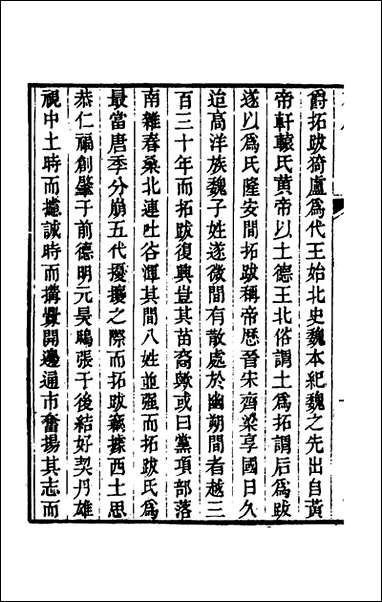 爵拓跋猗盧爲代王始北史魏本紀魏之先出自黃
帝軒轅氏黃帝以土德王北俗謂土爲拓謂后爲跋
遂以爲氏隆安間拓跋稱帝歷晉宋齊梁享國日久
迨高洋族魏子姓遂微間有散處於幽朔間者越三
百三十年而拓跋復興豈其苗裔歟或曰黨項部落
南雜舂桑北連吐谷渾其間八姓並强而拓跋氏爲
最當唐季分崩五代擾攘之際而拓跋竊據西土思
恭仁福創肇于前德明元昊鴟張于後結好契丹雄
視中土時而攄誠時而搆釁開邊通市奮揚其志而